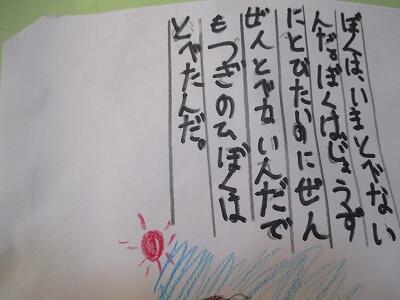 ぼくは、いまとべない
んだ。ぼくはじょうず
にとびたいのにぜん
ぜんとべないんだで
もつぎのひぼくは
とべたんだ。